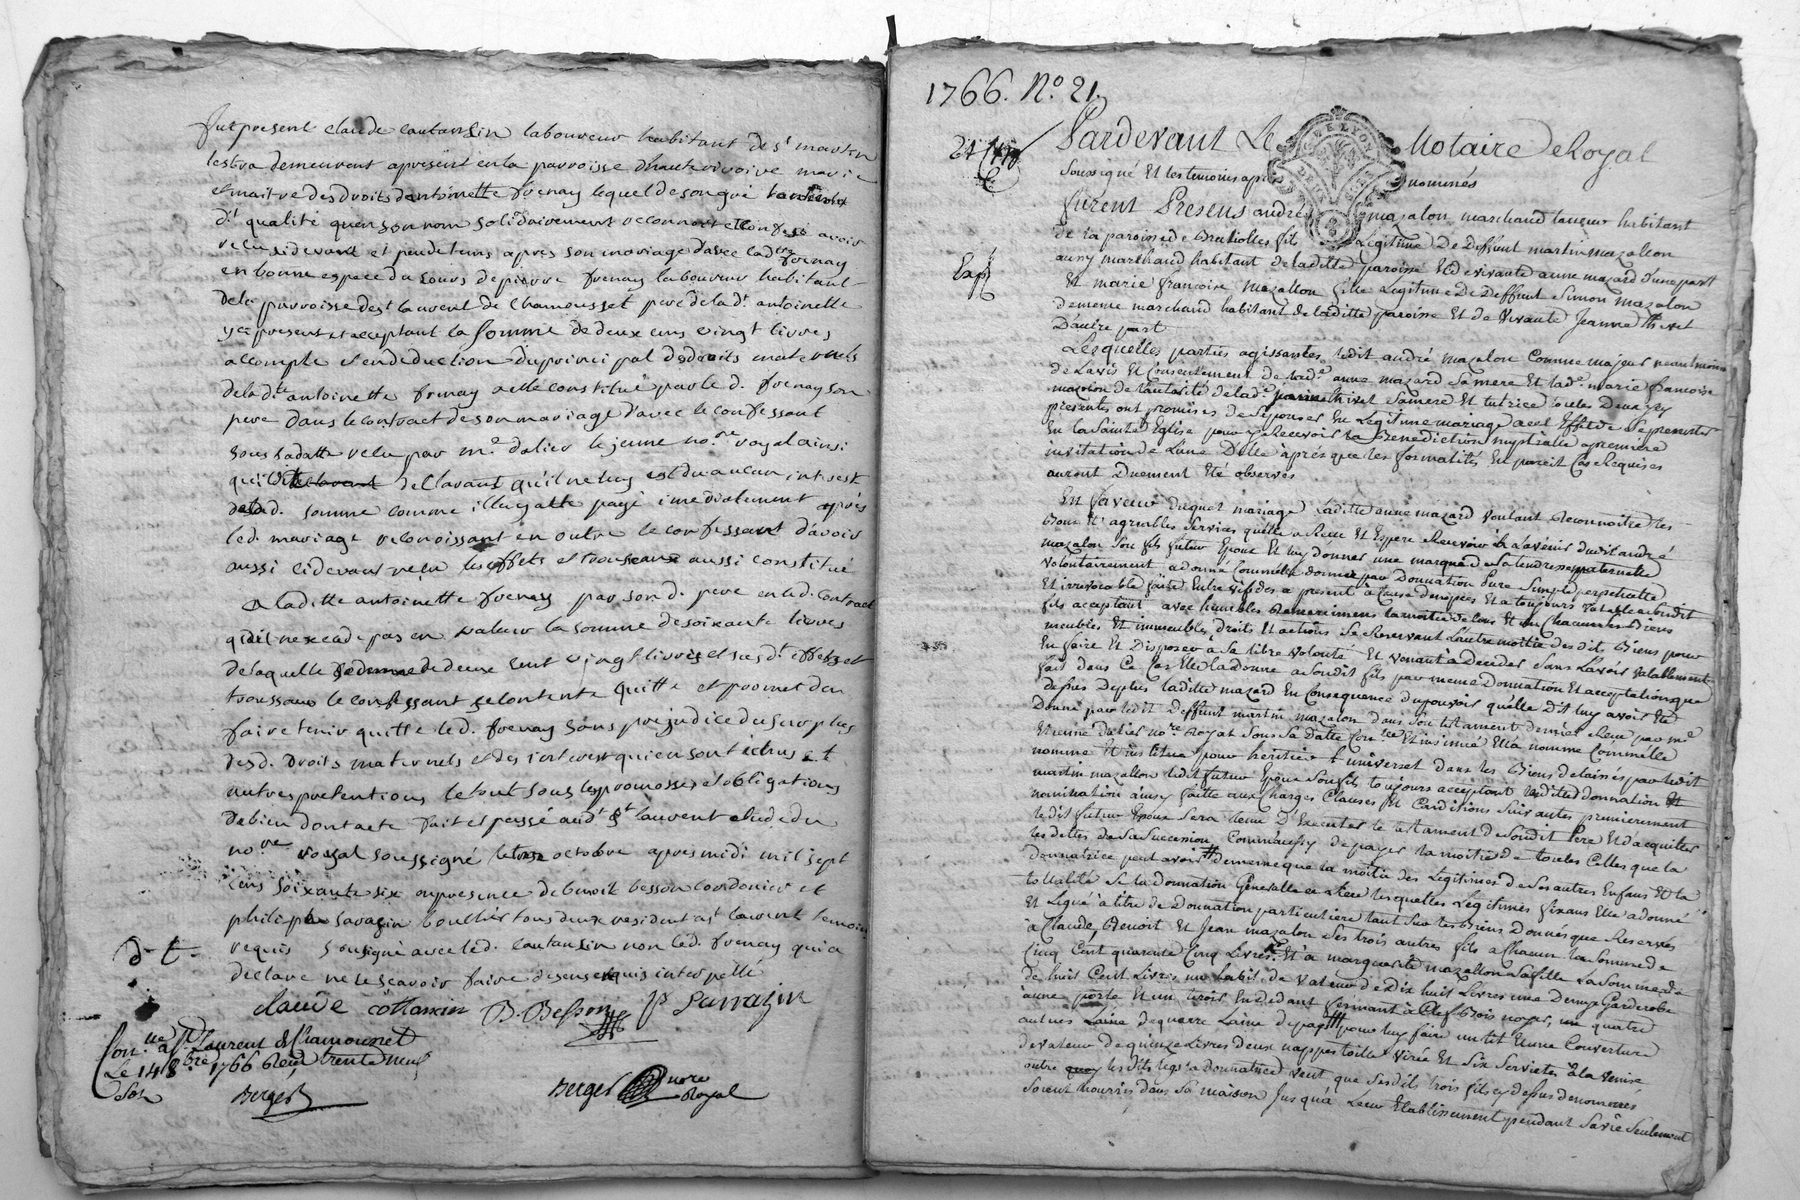 fut present claude cautansin laboureur habitant de st martin
lestra demeurent apresent en la parroisse dhauterivoire marie
et maitre des droits dantoinette frenay lequel de son gré
dt qualité quen son nom solidairement reconnoit et confesse avoir
receu sidevant et peu de tems apres son mariage davec lad frenay
en bonne espece du cours de pierre frenay laboureur habitant
de la parroisse de st laurent de chamousset pere de lad antoinette
present et acceptant la somme de deux cens vingt livres
acompte et en deduction du principal des droits maternels
de lad antoinette frenay a elle constitué par led. frenay son
pere dans le contract de son mariage davec le confessant
sous sa datte receu par me dalier le jeune nore royal ainsi
quil dit declarant quil ne luy est du aucun interest
de lad. somme comme payé imediatement après
led. mariage reconoissant en outre le confessant davoir
aussi cidevant reçu les effets et trousseaux aussi constitué
a laditte antoinette frenay par sond. pere en led. contract
qui nexcede pas en valeur la somme de soixante livres
de laquelle somme de deux cent vingt livres et susdt effets et
trousseau le confessant se contente quitte et promet den
faire tenir quitte led. frenay sans prejudice du surplus
desd. droits maternels et des interest qui en sont échus et
autres pretentions le tout sous les promesses et obligations
de bien dont acte fait et passé audt st laurent etude du
nore royal soussigné le octobre apres midi mil sept
cens soixante six en presence de benoit besson cordonier et
philipe sarazin tous deux resident a st laurent temoins
requis soussigné avec led. cautansin non led. frenay qui a
declare ne le scavoir faire de ce enquis interpellé
d. t.
claude cottansin B. Besson P Sarrazin
Con.lle a St Laurent de Chamousset
Le 14 8bre 1766 Reçu trente neuf
sols
Berger
Berger nore
Royal
1766. No. 21.
Pardevant Le Notaire Royal
Soussigné Et les temoins apres nommés
furent Presens andré mazalon marchand taneur habitant
de la paroisse de Brullioles fils Legitime De Deffunt martin mazallon
aussy marchand habitant de laditte paroisse Et de vivante anne mazard dune part
Expé
Et marie francoise mazallon fille Legitime De Deffunt Simon mazalon
de meme marchand habitant de laditte paroisse Et de Vivante Jeanne thivet
D'autre part
Lesquelles parties agissantes ledit andré mazalon Comme majeur neantmoins
de Lavis Et Consentement de lade anne mazard Sa mere Et lade marie francoise
mazalon de Lautorité de lade jeanne thivet Sa mere Et tutrice toutes Deux icy
presentes ont promises de Sepouser En Legitime mariage a cet Effet de Se presenter
En la Sainte Eglise pour y Recevoir La Benediction nuptialle a premiere
invitation de Lune Delle après que les formalités En pareil Cas Requises
auront Duement Eté observés
En faveur duquel mariage Laditte anne mazard voulant Reconnoitre les
Bons Et agreables Services quelle a Receu Et Espere Recevoir à Lavenir dudit andré
mazalon Son fils futur Epoux Et luy donner une marque de Sa tendresse maternelle
volontairement a donné Comme elle donne par Donnation Pure Simple perpetuelle
Et irrevocable faite Entre vifs des a present à Cause de nopces Et a toujours valable audit
fils acceptant avec humbles Remercimens la moitié de tous Et un Chacun Ses Biens
meubles Et immeubles, droits Et actions Se Reservant Lautre moitié desdits Biens pour
En faire Et Disposer a Sa libre volonté Et venant à Deceder Sans L'avoir valablement
fait dans Ce Cas Elle la donne a Sondit fils par meme Donnation Et acceptation que
dessus De plus laditte mazard En Consequence du pouvoir quelle Dit luy avoir Eté
Donné par ledit deffunt martin mazalon dans Son testament dernier Receu par me
Etienne dalier nore Royal Sous Sa Datte Conlée Et insinué Ella nommé Comme elle
nomme Et institue pour heritier universel dans les Biens delaissés par ledit
martin mazallon ledit futur Epoux Son fils toujours acceptant laditte donnation Et
nomination ainsy faitte aux Charges Clauses Et Conditions Suivantes premierement
ledit futur Epoux Sera tenu D'Executer le testament de Sondit Pere Et d'acquitter
les dettes de Sa Succession Comme aussy de payer la moitié de toutes Celles que la
donnatrice peut avoir de meme que la moitié des Legitimes de Ses autres Enfans Et la
tottalité Si la Donnation Generalle a Lieu lesquelles Legitimes fixans Elle a donné
Et Legué à titre de Donnation particuliere tant Sur les Biens Donnés que Reservés
à Claude, Benoit Et Jean mazalon Ses trois autres fils a Chacun la Somme de
Cinq Cent quarante Cinq Livres, Et à marguerite mazallon Sa fille La Somme de
de huit Cent Livres un habit de valeur de Dix huit Livres une Demye Garderobe
à une porte Et un tiroir En dedant fermant à Clef Bois noyer, un quatre
aunes Laine de guerre Laine de pays pour luy faire un lit Et une Couverture
de valeur de quinze Livres deux nappes toille virée Et Six Serviettes à la venise
outre lesdits legs la Donnatrice veut que Sesdits trois fils cy dessus denommés
Soient nourris dans Sa maison Jusqu'à Leur Etablissement pendant Sa vie Seulement